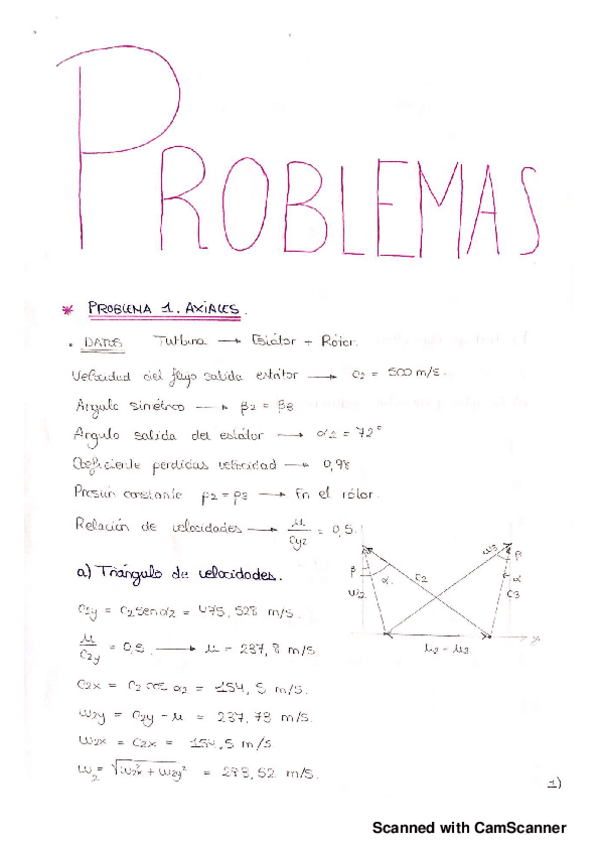 PROBLEMAS
* PROBLEMA 1. AXIALES.
• DATOS Turbina → Estátor + Rótor.
Velocidad del flujo salida estátor → c2 = 500 m/s.
Ángulo simétrico → β2 = β3
Ángulo salida del estátor → α2 = 72°
Coeficiente perdidas velocidad → 0,98
Presión constante p2 = p3 → En el rótor.
Relación de velocidades → u/cy2 = 0,5.
a) Triángulo de velocidades.
c2y = c2 sen α2 = 475,528 m/s.
u/c2y = 0,5. → u = 237,8 m/s
c2x = c2 cos α2 = 154,5 m/s.
w2y = c2y - u = 237,78 m/s.
w2x = c2x = 154,5 m/s.
w2 = √w2x² + w2y² = 283,52 m/s.
β α c2 w3 β
w2 α c3
u2 - u3
1)
Scanned with CamScanner